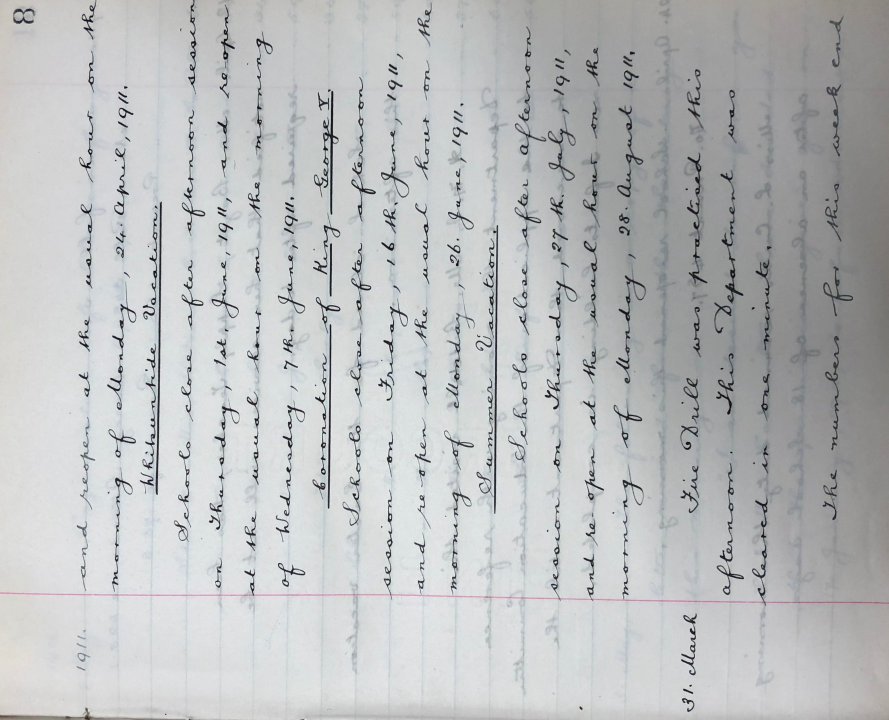 8
1911. and reopen at the usual hour on the
morning of Monday, 24. April, 1911.
Whitsuntide Vacation.
Schools close after afternoon session
on Thursday, 1st. June, 1911, and re open
at the usual hour on the morning
of Wednesday, 7th. June, 1911.
Coronation of King George V.
Schools close after afternoon
session on Friday, 16th. June, 1911,
and re-open at the usual hour on the
morning of Monday, 26. June, 1911.
Summer Vacation.
Schools close after afternoon
session on Thursday, 27th. July, 1911,
and re open at the usual hour on the
morning of Monday, 28. August 1911.
31. March Fire Drill was practised this
afternoon. This Department was
cleared in one minute.
The numbers for this week end